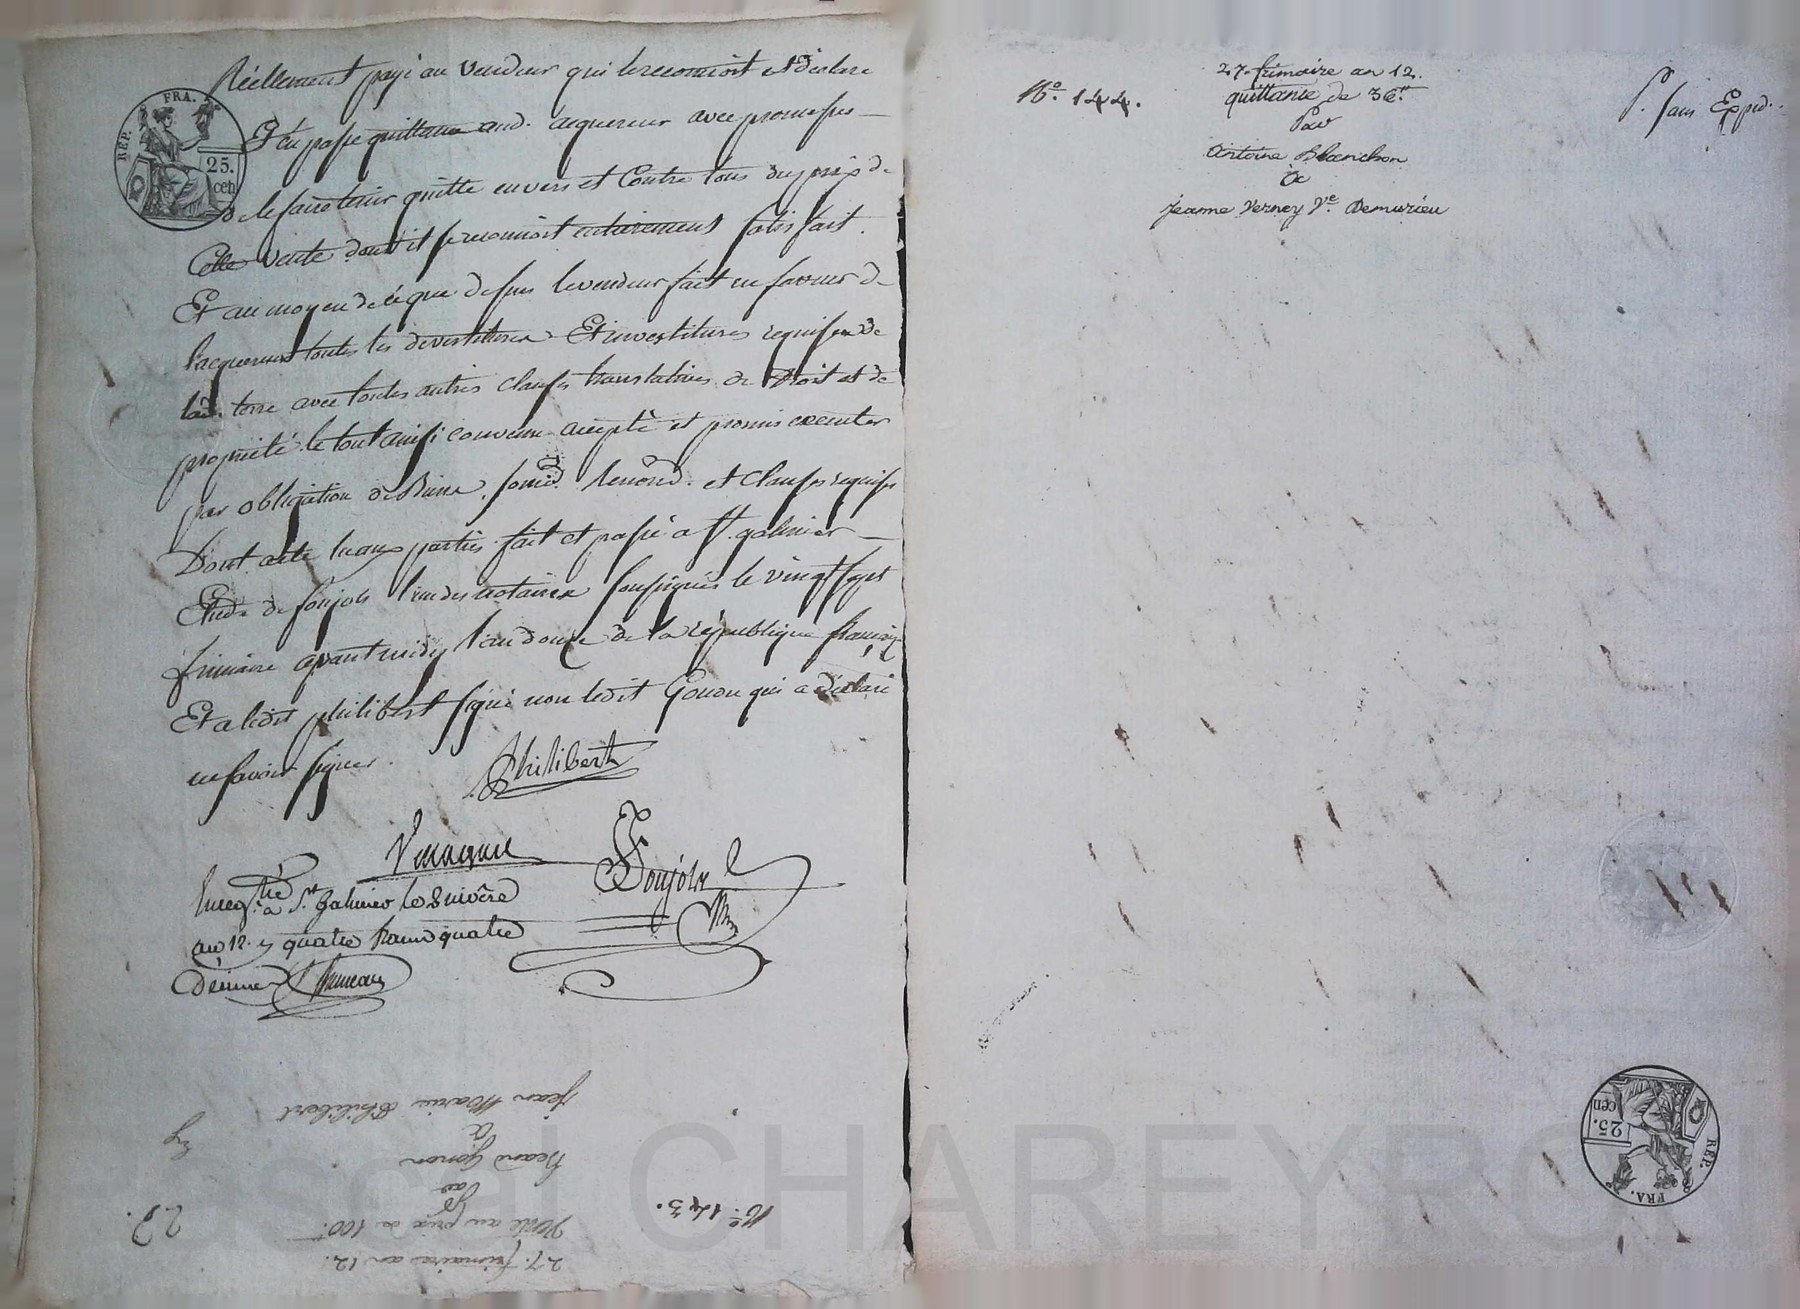 Réellement payé au vendeur qui le reconnoit et déclare
Et en passe quittance aud. acquereur avec promesses
de le faire tenir quitte envers et Contre tous du prix de
Cette vente dont il se reconnoit entierement satisfait.
Et au moyen de ce que dessus le vendeur fait en faveur de
l'acquereur toutes les devestitures Et investitures requises de
lad. terre avec toutes autres clauses translatives de droit et de
proprieté le tout ainsi convenu accepté et promis executer
par obligation de Biens, soumid. renond. et clauses requises
Dont acte lu aux parties fait et passé a St. galmier
Etude de soujols l'un des notaires soussignés le vingt sept
frimaire avant midy l'an douze de la république française
Et a ledit philibert signé non ledit Gonon qui a déclaré
ne savoir signer.
Philibert
Soujols
Enregtré a St. Galmier le 8 nivôse
an 12. quatre francs quatre
Decimes
REP. FRA.
25. cen
27. frimaire an 12.
Vente au prix de 100
Par
Gonon
à
Jean Marie Philibert
No. 143.
23.
No. 144.
27. frimaire an 12.
quittance de 36
Par
Antoine Blanchon
à
Jeanne Verney Ve. Demurieu
P. sans Expéd.
REP. FRA.
25. cen
Pascal CHAREYRON